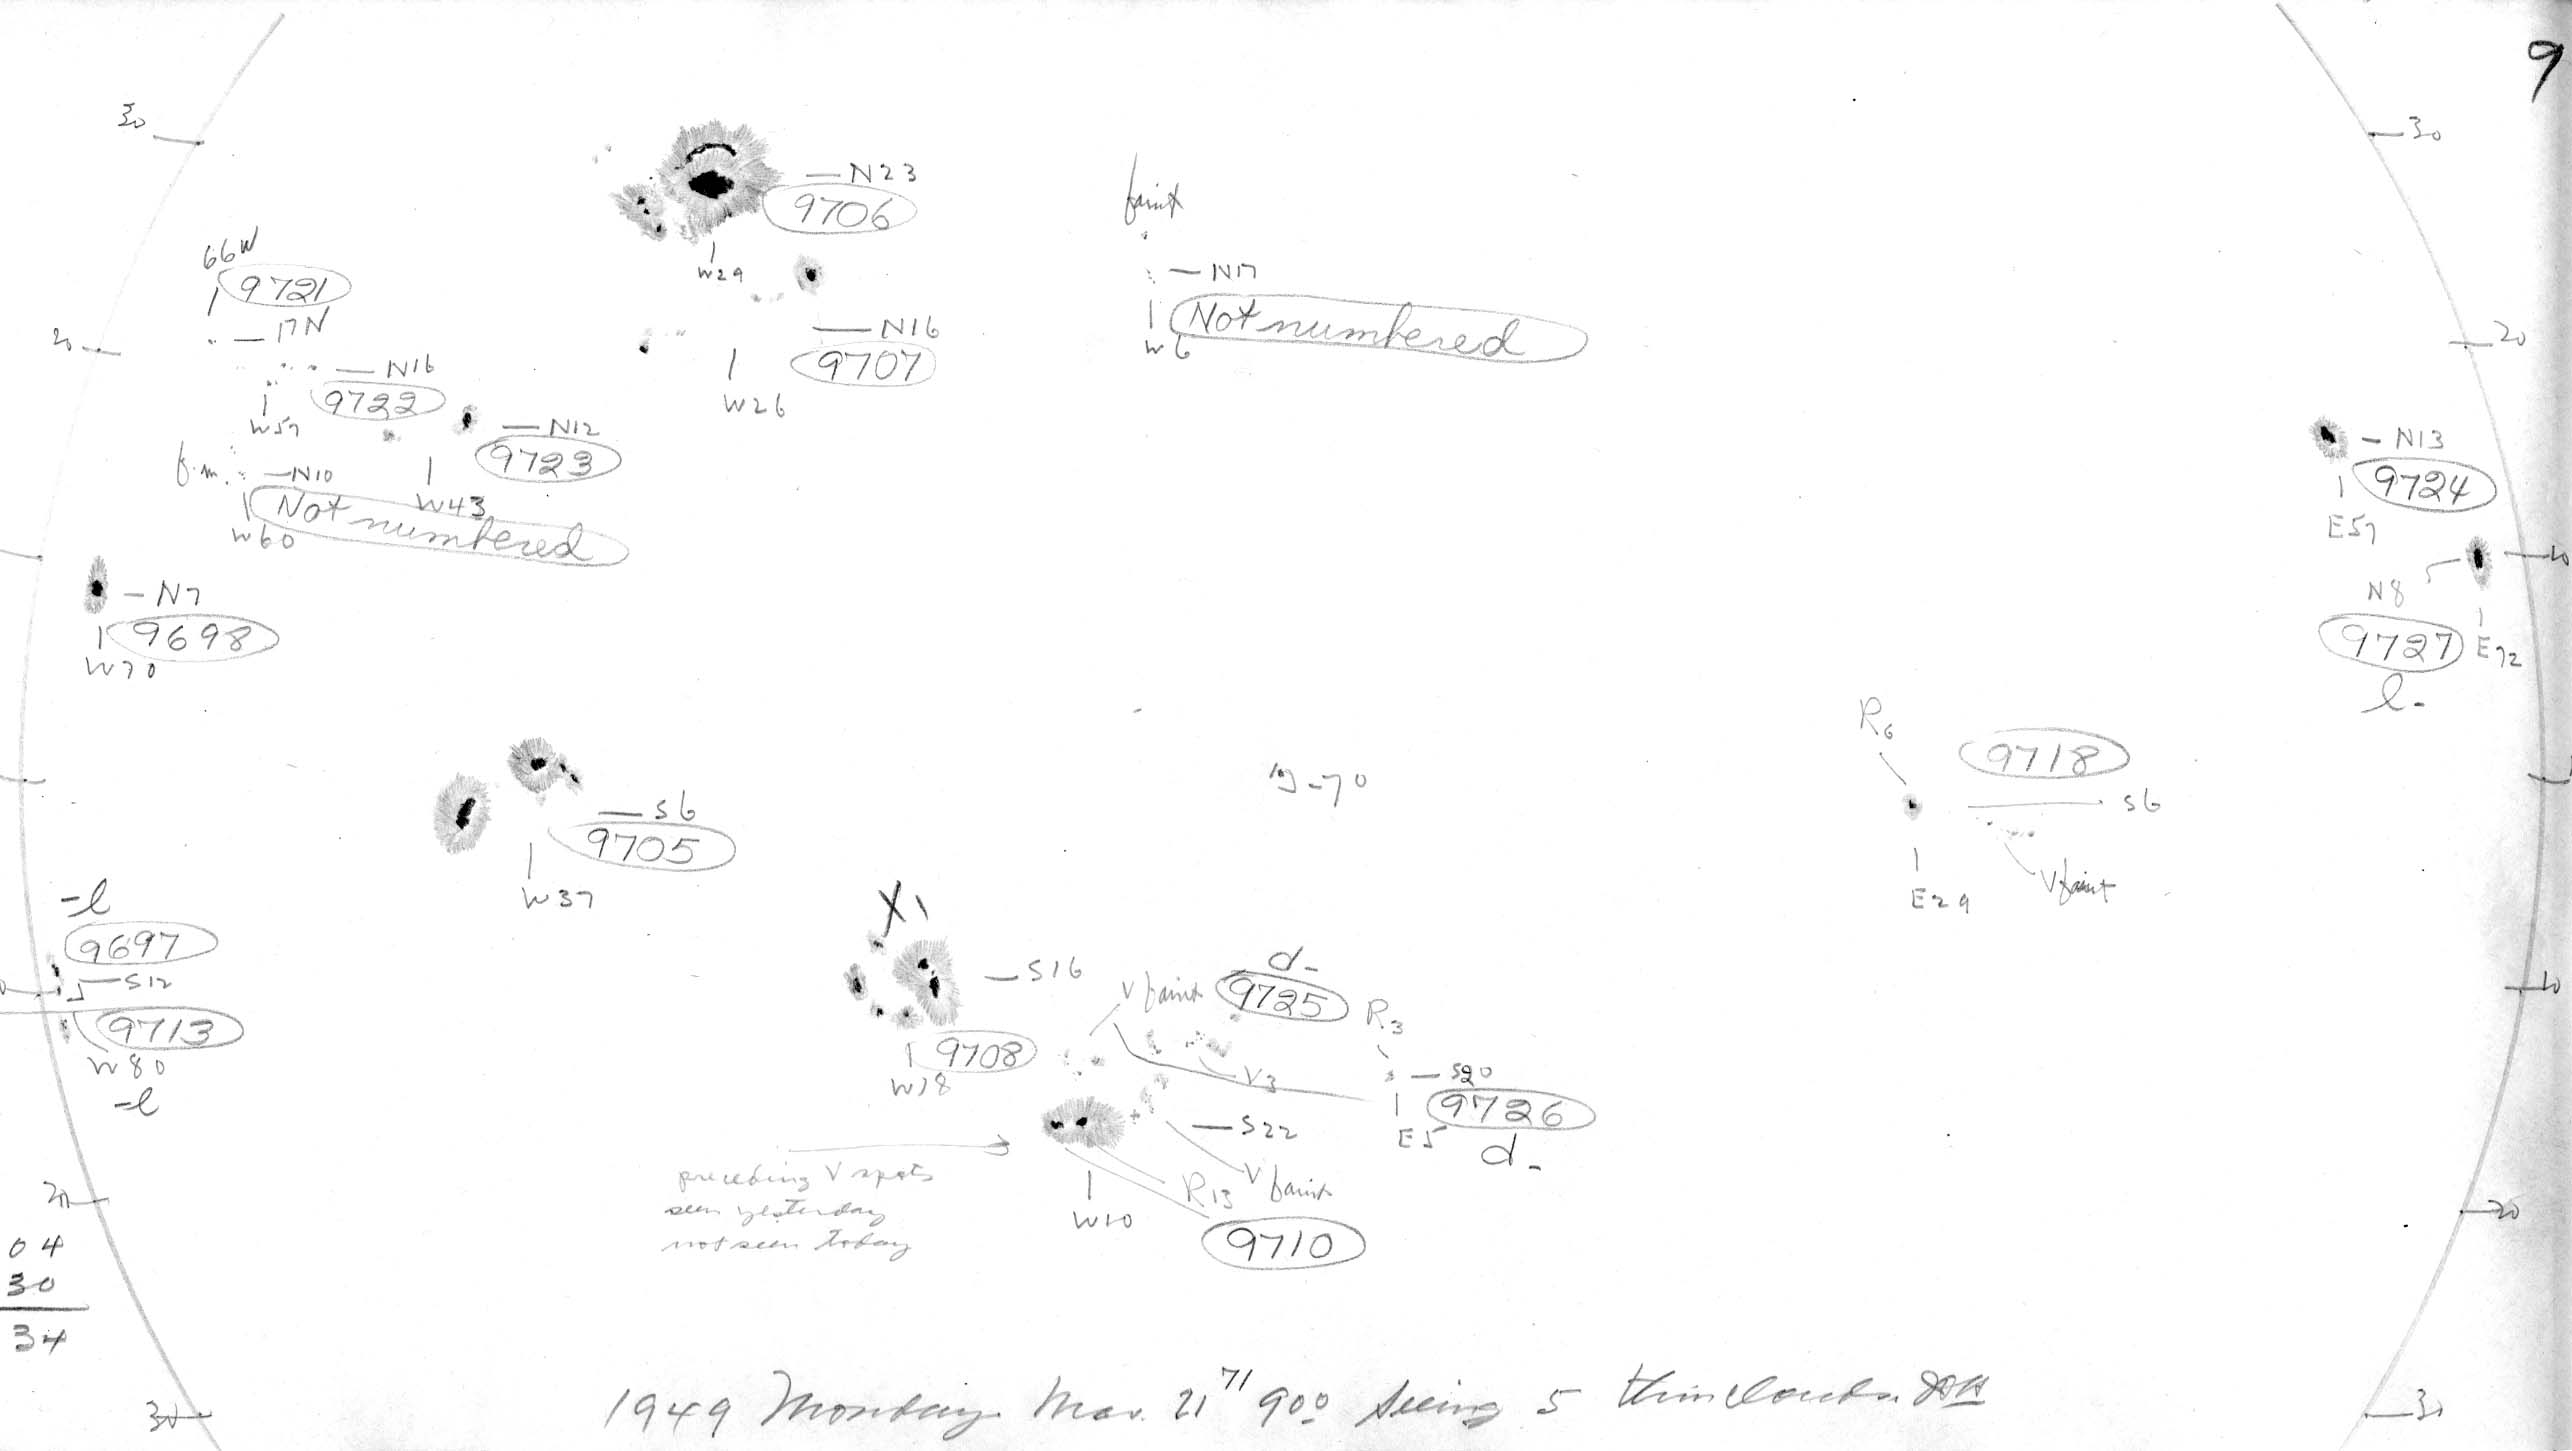 9
30
30
N23
9706
W29
faint
N17
Not numbered
W6
66W
9721
17N
20
20
N16
9707
W26
N16
9722
W57
N12
9723
W43
f.m.
N10
Not numbered
W60
N13
9724
E57
10
N8
9727
E72
l-
N7
9698
W70
R6
9718
S6
V faint
E29
S6
9705
W37
-l
9697
S12
9713
W80
-l
X1
S16
9708
W18
V faint
d-
9725
R3
V3
S20
9726
E5
d-
10
S22
V faint
R13
W10
9710
preceding V spots
seen yesterday
not seen today
20
20
04
30
34
30
30
1949 Monday Mar. 21 71 900 Seeing 5 thin clouds.